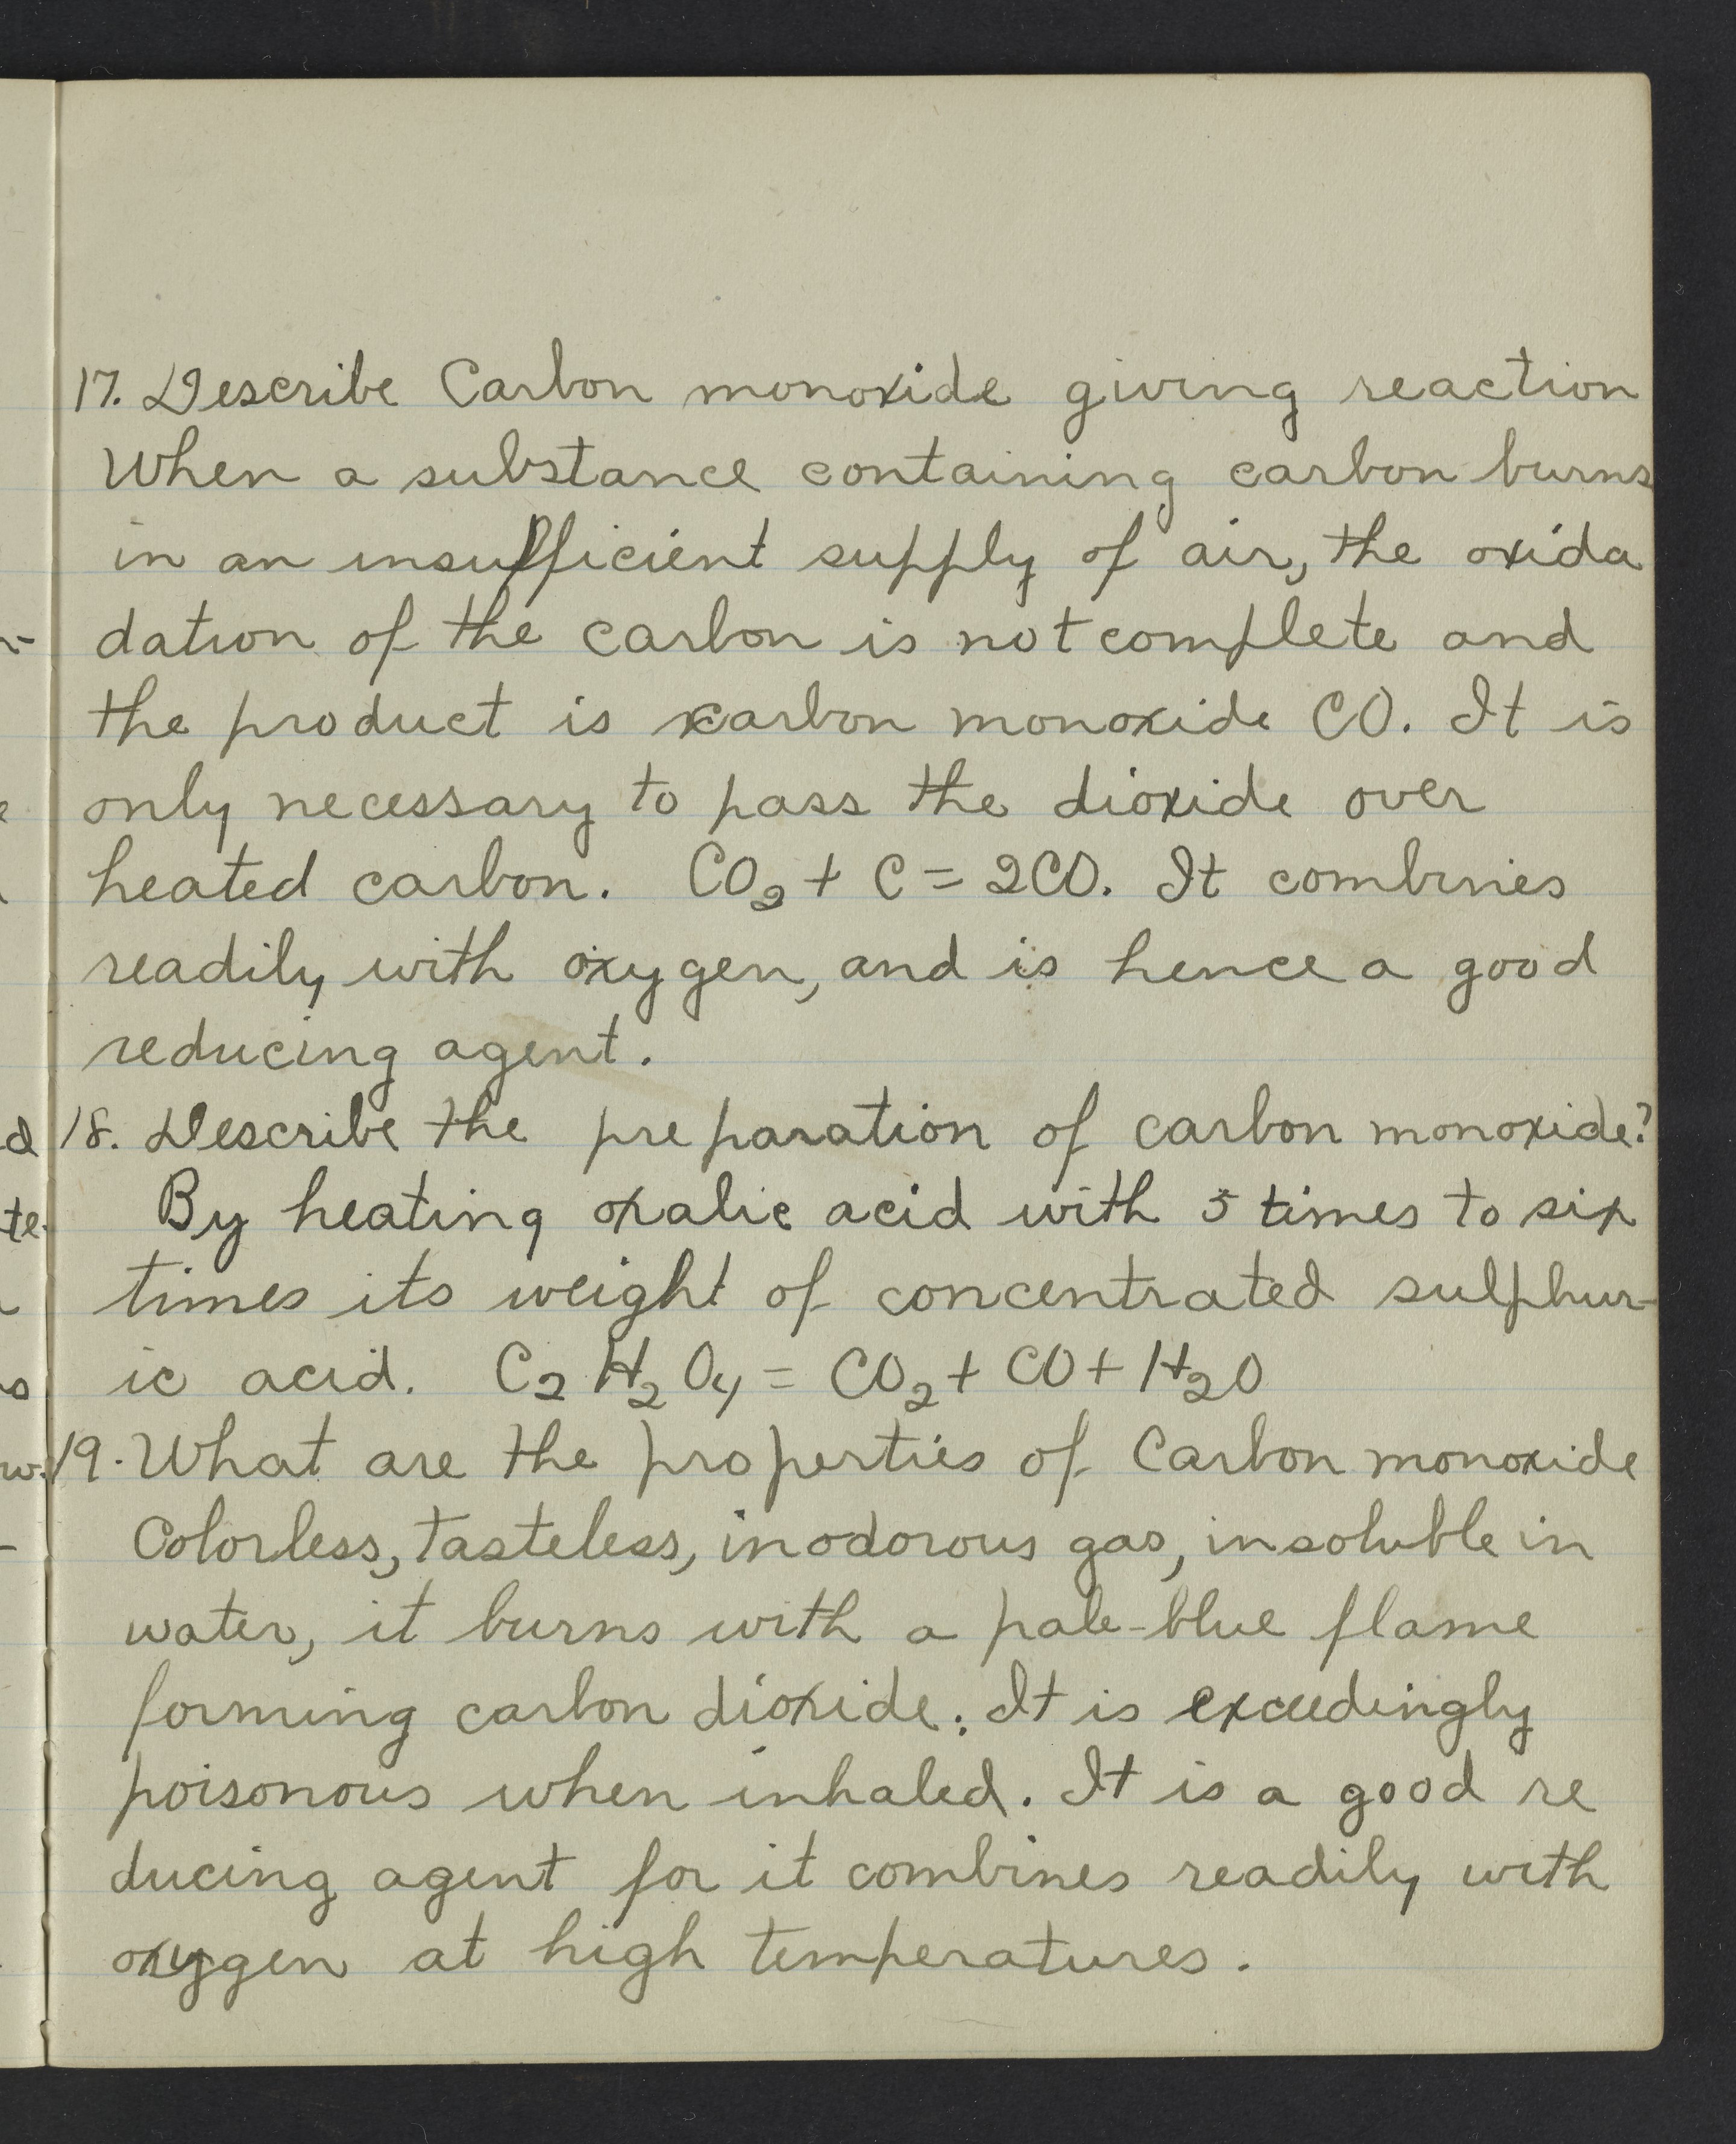 17. Describe Carbon monoxide giving reaction
When a substance containing carbon burns
in an insufficient supply of air, the oxida
dation of the carbon is not complete and
the product is carbon monoxide CO. It is
only necessary to pass the dioxide over
heated carbon. CO₂ + C = 2CO. It combines
readily with oxygen, and is hence a good
reducing agent.
18. Describe the preparation of carbon monoxide?
By heating oxalic acid with 5 times to six
times its weight of concentrated sulphur-
ic acid. C₂H₂O₄ = CO₂ + CO + H₂O
19. What are the properties of Carbon monoxide
Colorless, tasteless, inodorous gas, insoluble in
water, it burns with a pale-blue flame
forming carbon dioxide. It is exceedingly
poisonous when inhaled. It is a good re
ducing agent for it combines readily with
oxygen at high temperatures.